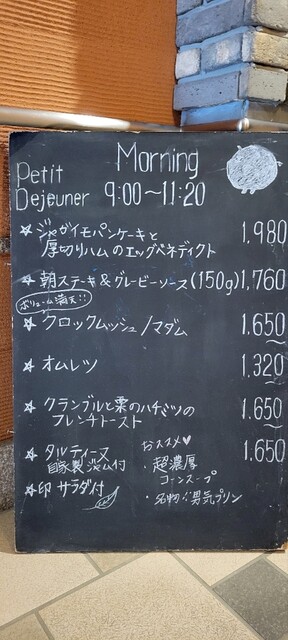 Petit
Dejeuner
Morning
9:00～11:20
☆ ジャガイモパンケーキと
厚切りハムのエッグベネディクト 1.980
☆ 朝ステーキ&グレービーソース(150g) 1,760
ボリューム満天!!
☆ クロックムッシュ/マダム 1.650～
☆ オムレツ 1.320～
☆ クランブルと栗のハチミツの
フレンチトースト 1.650～
☆ タルティーヌ 1.650
自家製ジャム付
☆印 サラダ付
おススメ♥
・超濃厚
コーンスープ
・名物!!男気プリン